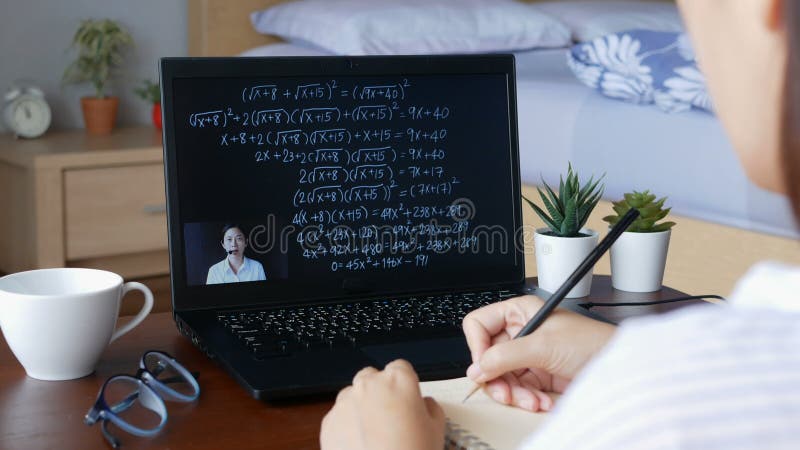 (√x+8 + √x+15)² = (√9x+40)²
(√x+8)²+2(√x+8)(√x+15)+(√x+15)² = 9x+40
x+8+2(√x+8)(√x+15)+x+15 = 9x+40
2x+23+2(√x+8)(√x+15) = 9x+40
2(√x+8)(√x+15) = 7x+17
(2(√x+8)(√x+15))² = (7x+17)²
4(x+8)(x+15) = 49x²+238x+289
4(x²+23x+120) = 49x²+238x+289
4x²+92x+480 = 49x²+238x+289
0 = 45x²+146x-191
dreamstime